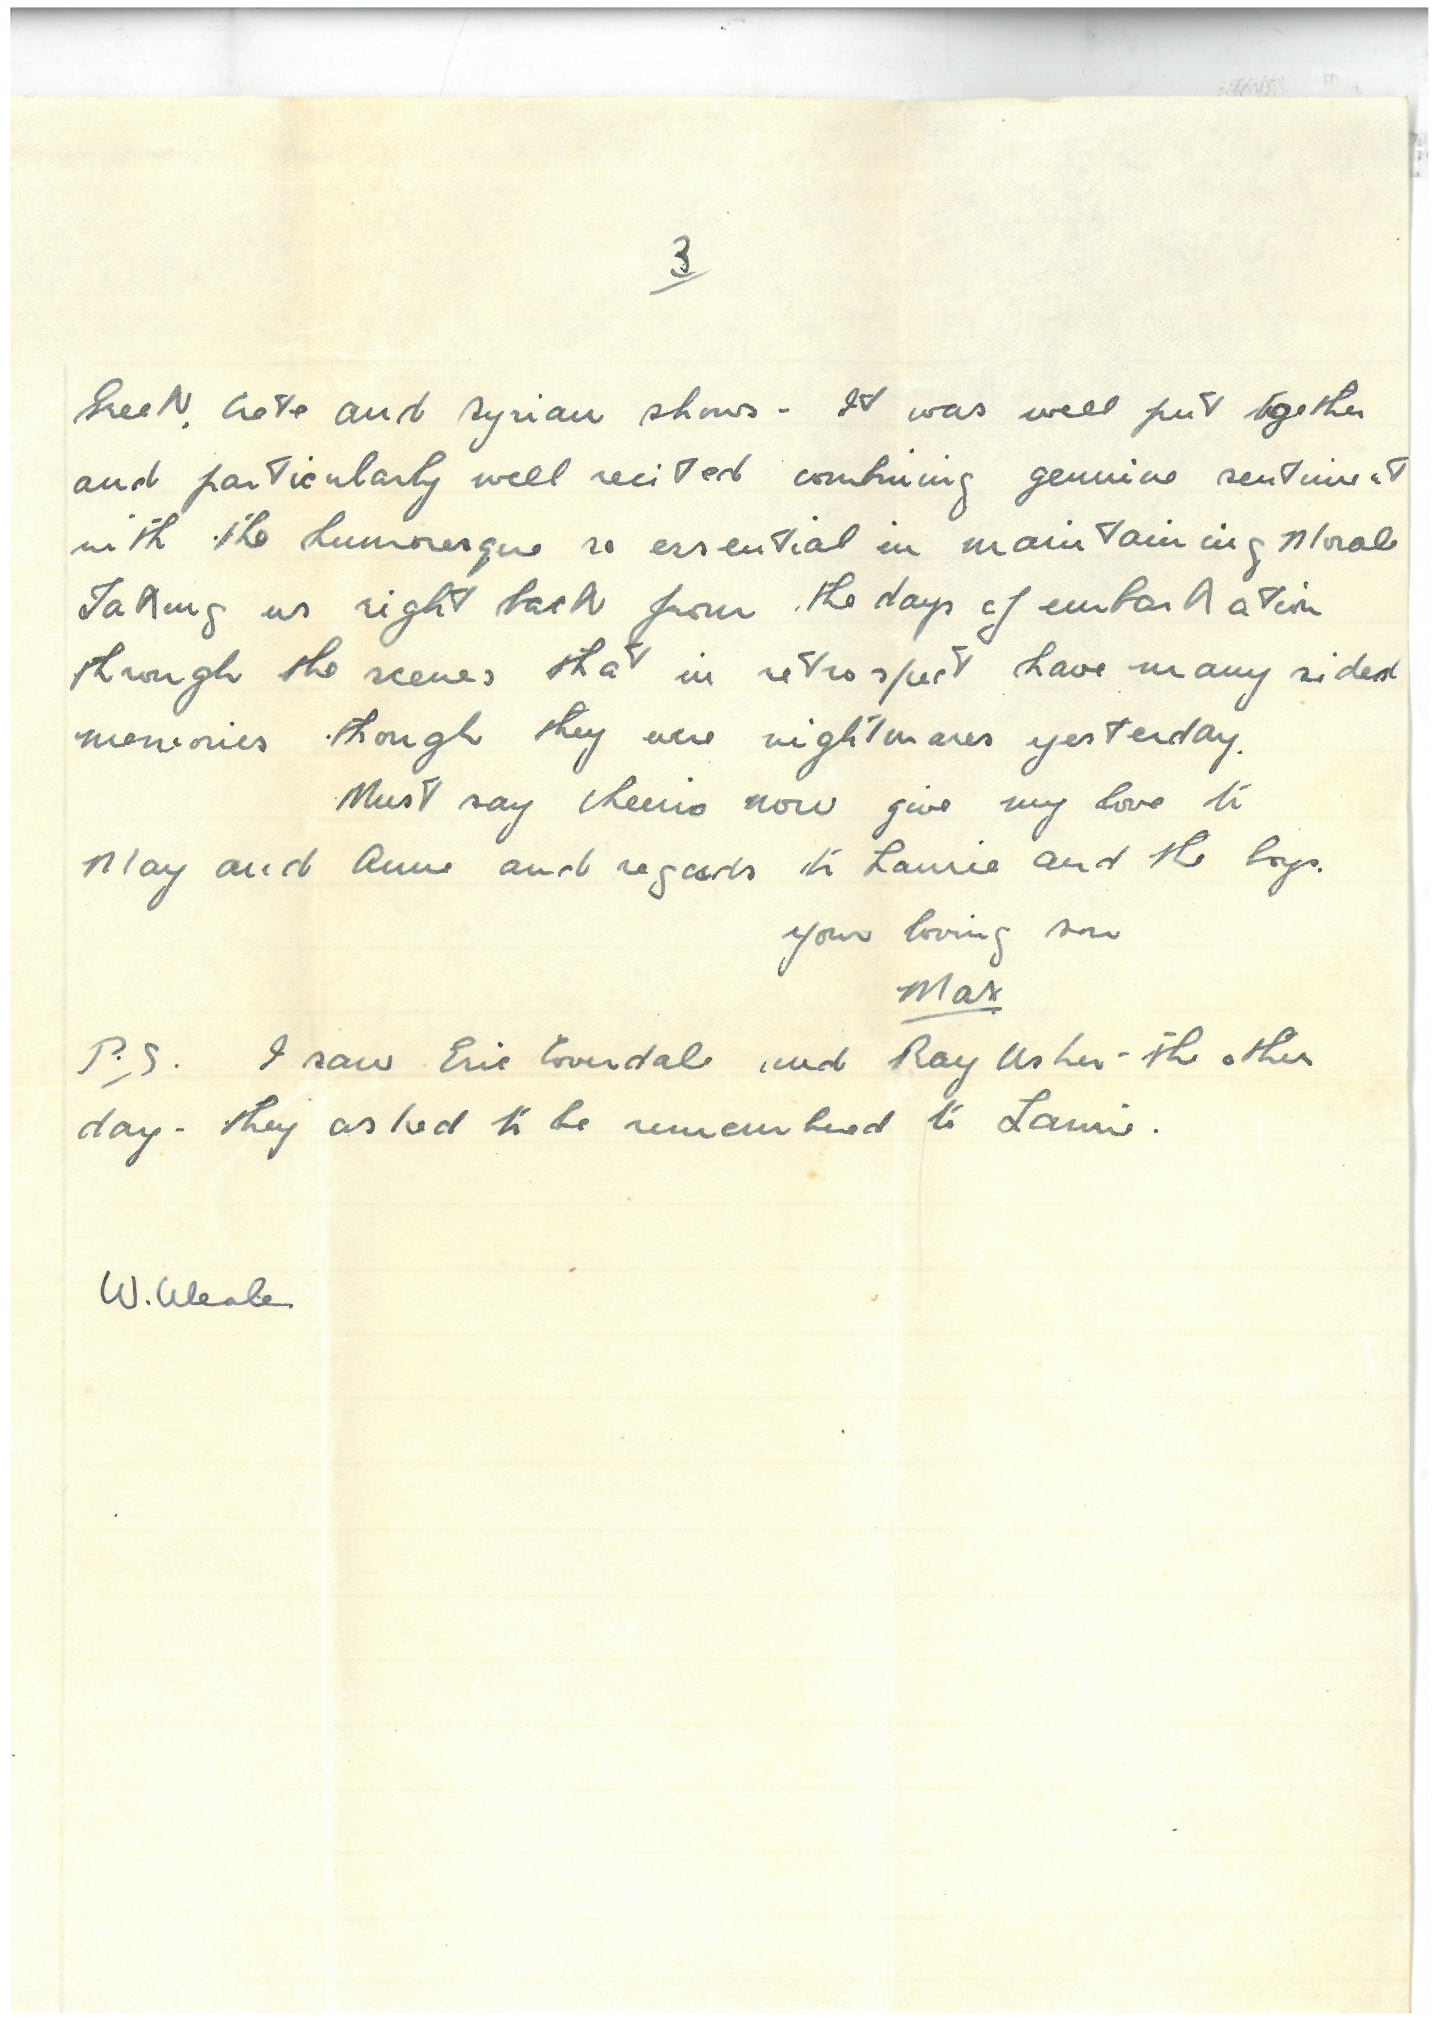 3
Greek, Crete and Syrian shows - It was well put together
and particularly well recited combining genuine sentiment
with the humoresque so essential in maintaining Morale
Taking us right back from the days of embarkation
through the scenes that in retrospect have many sided
memories though they were nightmares yesterday.
Must say cheerio now give my love to
May and Anne and regards to Laurie and the boys.
your loving son
Max
P.S. I saw Eric and Ray Usher - the other
day - they asked to be remembered to Laurie.
W.